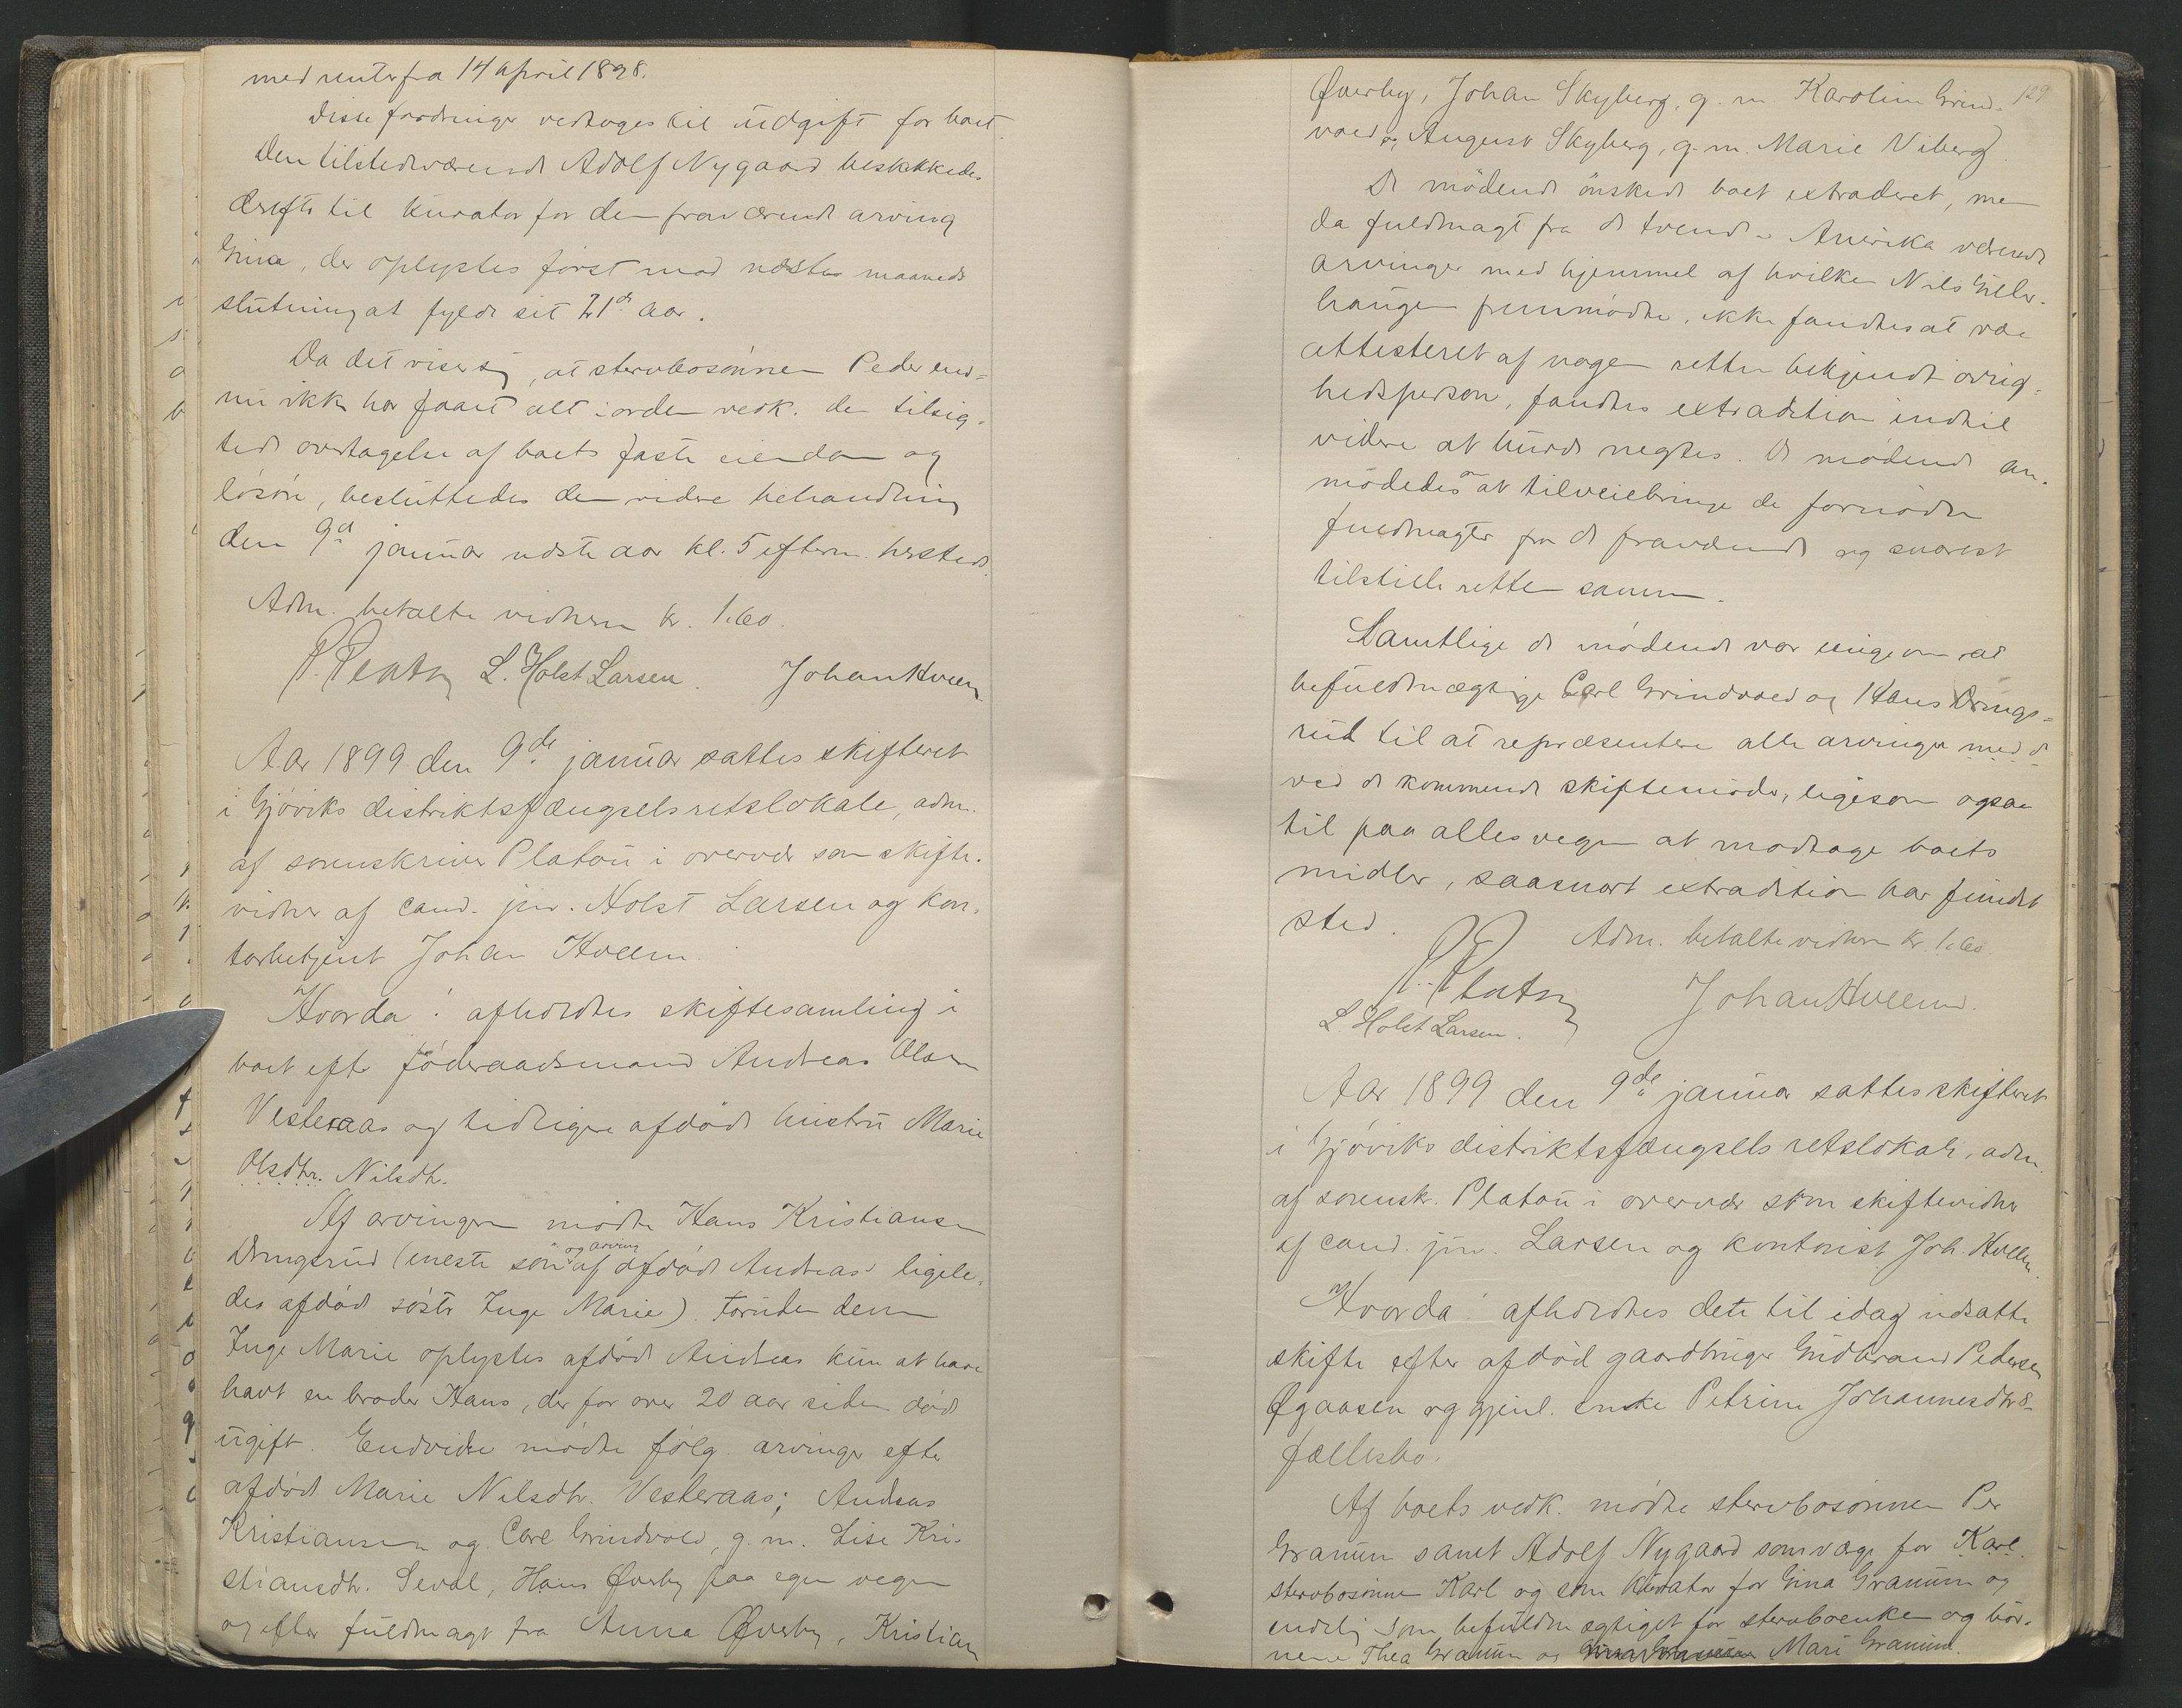 med renter fra 14 april 1898.
Disse fordringer vedtoges til udgift for boet.
Den tilstedeværende Adolf Nygaard beskikkedes
derefter til kurator for den fraværende arving
Gina, der oplystes først mod næste maaneds
slutning at fylde sit 21de aar.
Da det viser sig, at stervbosønnen Peder end=
nu ikke har faaet alt i orden vedk. den tilsig-
tede overtagelse af boets faste eiendom og
løsøre, besluttedes den videre behandling
den 9de januar næste aar kl. 5 efterm. hersteds.
Adm. betalte vidnerne kr. 1.60.
P. Platou L. Holst Larsen. Johan Kveem
Aar 1899 den 9de januar sattes skifteret
i Gjøviks distriktsfængsels retslokale, adm.
af sorenskriver Platou i overvær som skifte-
vidner af cand. jur. Holst Larsen og kon-
torbetjent Johan Kveem.
Hvorda: afholdtes skiftesamling i
boet efter føderaadsmand Andreas Olsen
Vesteraas og tidligere afdøde hustru Marie
Olsdtr. Nilsdtr.
Af arvingerne mødte Hans Kristiansen
Dringsrud (eneste søn og arving af afdøde Andreas' ligele-
des afdøde søster Inge Marie). Foruden denne
Inge Marie oplystes afdøde Andreas kun at have
havt en broder Hans, der for over 20 aar siden døde
ugift. Endvidere mødte følg. arvinger efter
afdøde Marie Nilsdtr. Vesteraas; Andreas
Kristiansen og Carl Grindvold, g. m. Lise Kri-
stiansdtr. Seval, Hans Øverby paa egne vegne
og efter fuldmagt fra Anna Øverby, Kristian
129
Øverby, Johan Skyberg, g. m. Karoline Grind-
vold og August Skyberg, g. m. Marie Viberg).
De mødende ønskede boet extraderet, men
da fuldmagt fra de tvende i Amerika værende
arvinger med hjemmel af hvilken Nils Giller-
haugen fremmødte, ikke fandtes at være
attesteret af nogen retten bekjendt øvrig-
hedsperson, fandtes extradition indtil
videre at burde negtes. De mødende an-
modedes om at tilveiebringe de fornødne
fuldmagter fra de fraværende og snarest
tilstille retten samme.
Samtlige de mødende var enige om at
befuldmægtige Carl Grindvold og Hans Drings=
rud til at repræsentere alle arvinger med d
ved de kommende skiftemøder, ligesom ogsaa
til paa alles vegne at modtage boets
midler, saasnart extradition har fundet
sted. Adm. betalte vidnerne kr. 1.60.
P. Platou Johan Kveem.
L. Holst Larsen.
Aar 1899 den 9de januar sattes skifteret
i Gjøviks distriktsfængsels retslokale, adm.
af sorenskr. Platou i overvær som skiftevidner
af cand. jur. Larsen og kontorist Joh. Kveem.
Hvorda: afholdtes dette til idag udsatte
skifte efter afdød gaardbruger Gudbrand Pedersen
Øgaasen og gjenl. enke Petrine Johannesdtrs
fællesbo.
Af boets vedk. mødte stervbosønnen Per
Granum samt Adolf Nygaard som verge for Karl
stervbosønnen Karl og som kurator for Gina Granum og
endelig som befuldmægtiget for stervboenken og bør-
nene Thea Granum og Gina Granum Mari Granum.